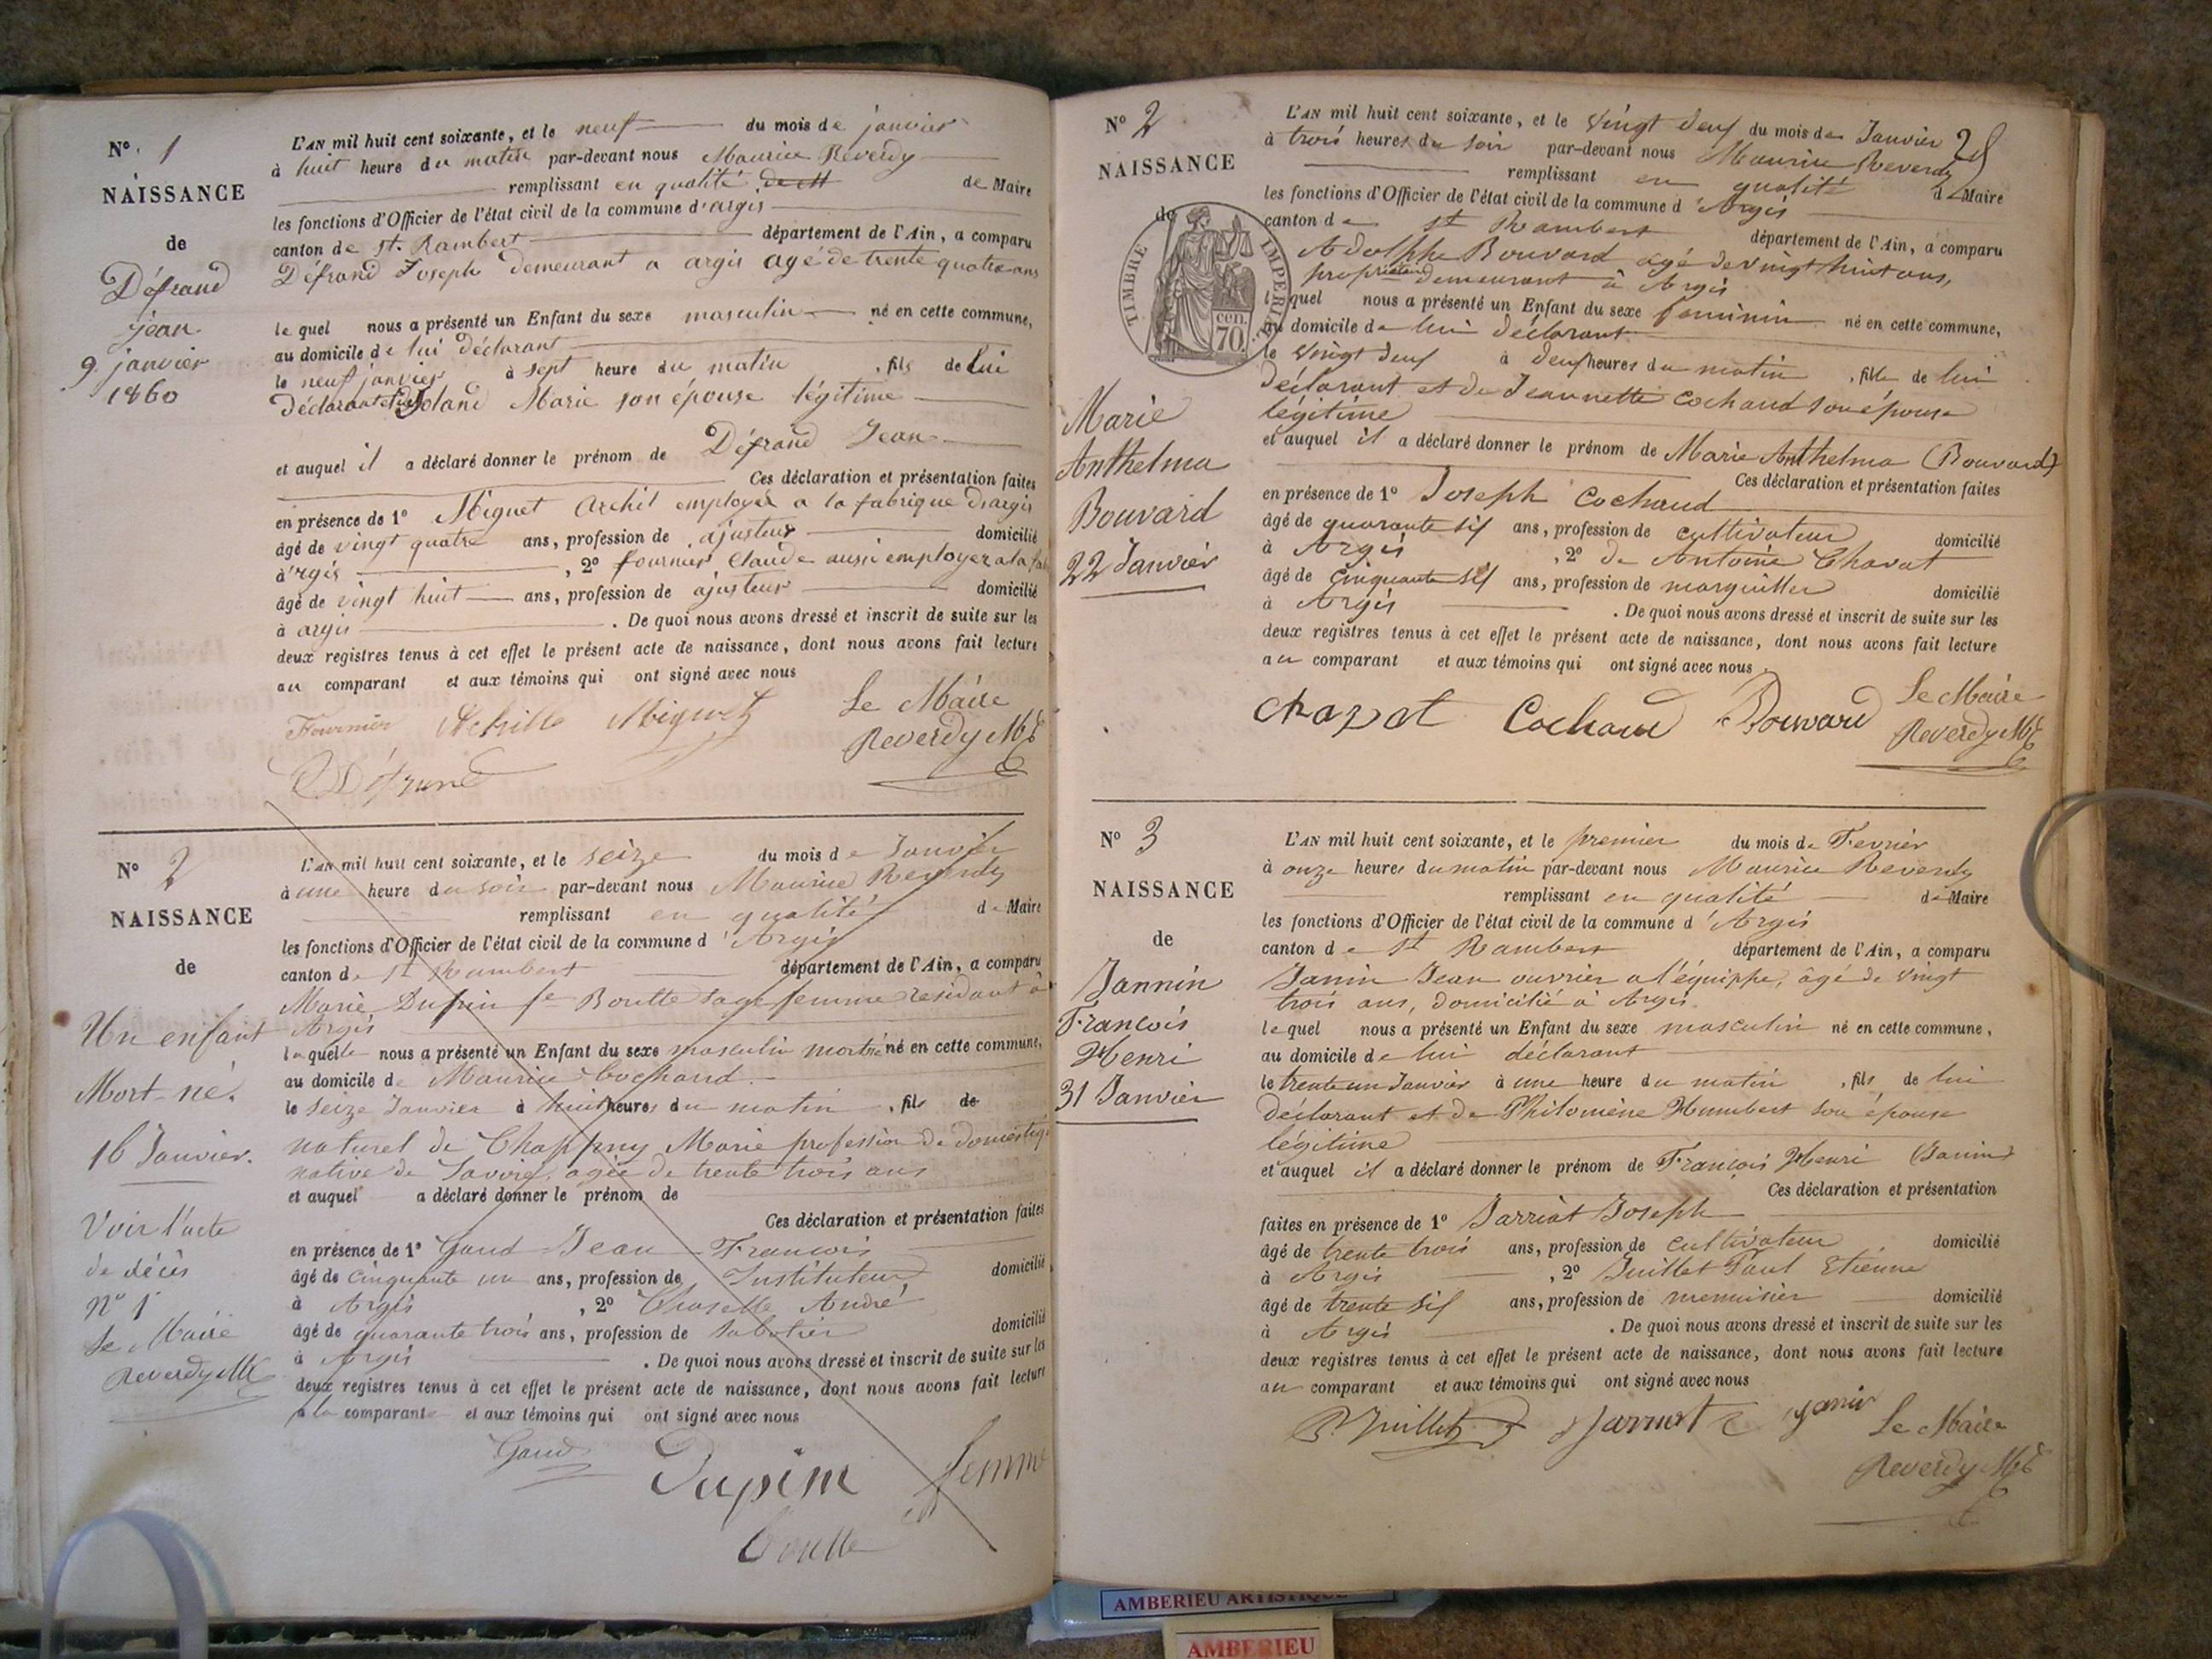 N° 1
NAISSANCE
de
Défrand
jean
9 janvier
1860
L'AN mil huit cent soixante, et le neuf du mois de janvier
à huit heure du matin par-devant nous Maurice Reverdy
remplissant en qualité de Maire
les fonctions d'Officier de l'état civil de la commune d'argis
canton de st. Rambert département de l'Ain, a comparu
Défrand Joseph demeurant a argis agé de trente quatre ans
le quel nous a présenté un Enfant du sexe masculin né en cette commune,
au domicile de lui déclarant
le neuf janvier à sept heure du matin , fils de lui
déclarant et de Marie son épouse légitime
et auquel il a déclaré donner le prénom de Défrand Jean
Ces déclaration et présentation faites
en présence de 1° Miguet Archil employé a la fabrique d'argis
âgé de vingt quatre ans, profession de ajusteur domicilié
à argis , 2° fournier Claude aussi employer a la fab
âgé de vingt huit ans, profession de ajusteur domicilié
à argis . De quoi nous avons dressé et inscrit de suite sur les
deux registres tenus à cet effet le présent acte de naissance, dont nous avons fait lecture
au comparant et aux témoins qui ont signé avec nous
Fournier Achille Miguet Le Maire
Reverdy
Défrand
N° 2
NAISSANCE
de
Un enfant
Mort-né.
16 Janvier.
Voir l'acte
de décès
N° 1
Le Maire
Reverdy
L'AN mil huit cent soixante, et le seize du mois de Janvier
à une heure du soir par-devant nous Maurice Reverdy
remplissant en qualité de Maire
les fonctions d'Officier de l'état civil de la commune d'Argis
canton de st Rambert département de l'Ain, a comparu
Marie Dupin fe Boutte sage femme résidant à
Argis
la quelle nous a présenté un Enfant du sexe masculin mort né né en cette commune,
au domicile de Maurice Cochand
le seize Janvier à huit heures du matin , fils de
naturel de Marie profession de domestiq
native de Savoie, agée de trente trois ans
et auquel a déclaré donner le prénom de
Ces déclaration et présentation faites
en présence de 1° Gaud Jean François
âgé de cinquante un ans, profession de Instituteur domicilié
à Argis , 2° Chaselle André
âgé de quarante trois ans, profession de sabotier domicilié
à Argis . De quoi nous avons dressé et inscrit de suite sur les
deux registres tenus à cet effet le présent acte de naissance, dont nous avons fait lecture
à la comparante et aux témoins qui ont signé avec nous
Gaud
Dupin femme
Boutte
N° 2
NAISSANCE
de
TIMBRE IMPERIAL
70 cen.
Marie
Anthelma
Bouvard
22 Janvier
28
L'AN mil huit cent soixante, et le vingt deux du mois de Janvier
à trois heures du soir par-devant nous Maurice Reverdy
remplissant en qualité de Maire
les fonctions d'Officier de l'état civil de la commune d'Argis
canton de st Rambert département de l'Ain, a comparu
Adolphe Bouvard agé de vingt huit ans,
propriétaire demeurant à Argis
le quel nous a présenté un Enfant du sexe feminin né en cette commune,
au domicile de lui déclarant
le vingt deux à deux heures du matin , fille de lui
déclarant et de Jeannette Cochand son épouse
légitime
et auquel il a déclaré donner le prénom de Marie Anthelma (Bouvard)
Ces déclaration et présentation faites
en présence de 1° Joseph Cochand
âgé de quarante six ans, profession de cultivateur domicilié
à Argis , 2° de Antoine Chavat
âgé de cinquante six ans, profession de marguiller domicilié
à Argis . De quoi nous avons dressé et inscrit de suite sur les
deux registres tenus à cet effet le présent acte de naissance, dont nous avons fait lecture
au comparant et aux témoins qui ont signé avec nous
Chavat Cochand Bouvard Le Maire
Reverdy
N° 3
NAISSANCE
de
Jannin
François
Henri
31 Janvier
L'AN mil huit cent soixante, et le premier du mois de Fevrier
à onze heures du matin par-devant nous Maurice Reverdy
remplissant en qualité de Maire
les fonctions d'Officier de l'état civil de la commune d'Argis
canton de st Rambert département de l'Ain, a comparu
Janin Jean ouvrier a l'équippe, âgé de vingt
trois ans, domicilié à Argis
le quel nous a présenté un Enfant du sexe masculin né en cette commune,
au domicile de lui déclarant
le trente un Janvier à une heure du matin , fils de lui
déclarant et de Philomène Humbert son épouse
légitime
et auquel il a déclaré donner le prénom de François Henri (Janin)
Ces déclaration et présentation
faites en présence de 1° Jarriat Joseph
âgé de trente trois ans, profession de cultivateur domicilié
à Argis , 2° Juillet Paul Etienne
âgé de trente six ans, profession de menuisier domicilié
à Argis . De quoi nous avons dressé et inscrit de suite sur les
deux registres tenus à cet effet le présent acte de naissance, dont nous avons fait lecture
au comparant et aux témoins qui ont signé avec nous
P. Juillet Jarriat Janin Le Maire
Reverdy
AMBERIEU ARTISTIQUE
AMBERIEU